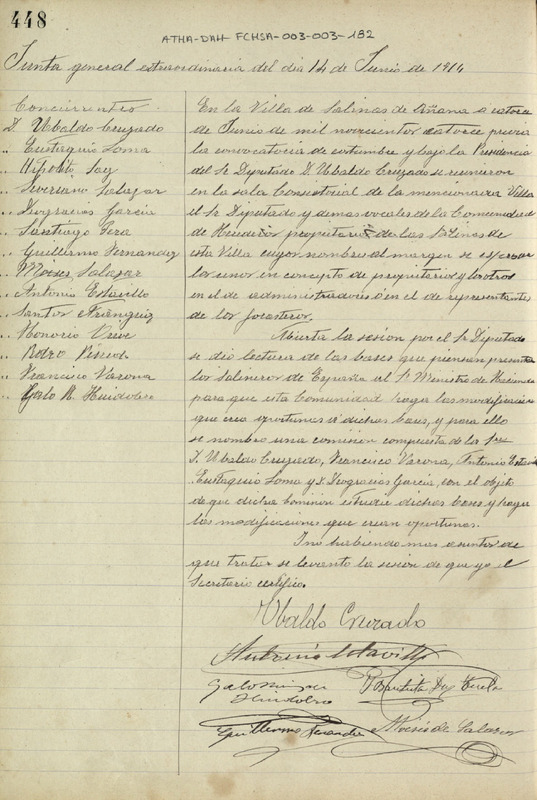 448
ATHA-DAH-FCHSA-003-003-182
Junta general extraordinaria del dia 14 de Junio de 1914
Concurrentes
D. Ubaldo Cruzado
" Eustaquio Loma
" Hipolito
" Severiano Salazar
" Deogracias Garcia
" Santiago
" Guillermo Fernandez
" Moises Salazar
" Antonio Estavillo
" Santos Frangueiz
" Honorio
" Pedro
" Francisco Varona
" Galo M. Huidobro
En la Villa de Salinas de Añana a catorce
de Junio de mil novecientos catorce previa
la convocatoria de costumbre y bajo la Presidencia
del Sr Diputado D. Ubaldo Cruzado se reunieron
en la sala Consistorial de la mencionada Villa
el Sr Diputado y demas vocales de la Comunidad
de Herederos propietarios de las Salinas de
esta Villa cuyos nombres al margen se expresan
los unos en concepto de propietarios y los otros
en el de administradores ó en el de representantes
de los forasteros.
Abierta la sesion por el Sr Diputado
se dio lectura de las bases que piensan presentar
los salineros de España al Sr Ministro de Hacienda
para que esta Comunidad haga las modificaciones
que crea oportunas á dichas bases, y para ello
se nombro una comision compuesta de los Sres
D. Ubaldo Cruzado, Francisco Varona, Antonio Estavillo
Eustaquio Loma y D. Deogracias Garcia, con el objeto
de que dicha Comision estudie dichas bases y haga
las modificaciones que crean oportunas.
I no habiendo mas asuntos de
que tratar se levanto la sesion de que yo el
Secretario certifico.
Ubaldo Cruzado
Antonio Estavillo
Galo
Huidobro
Bautista
Guillermo Fernandez
Moises de Salazar